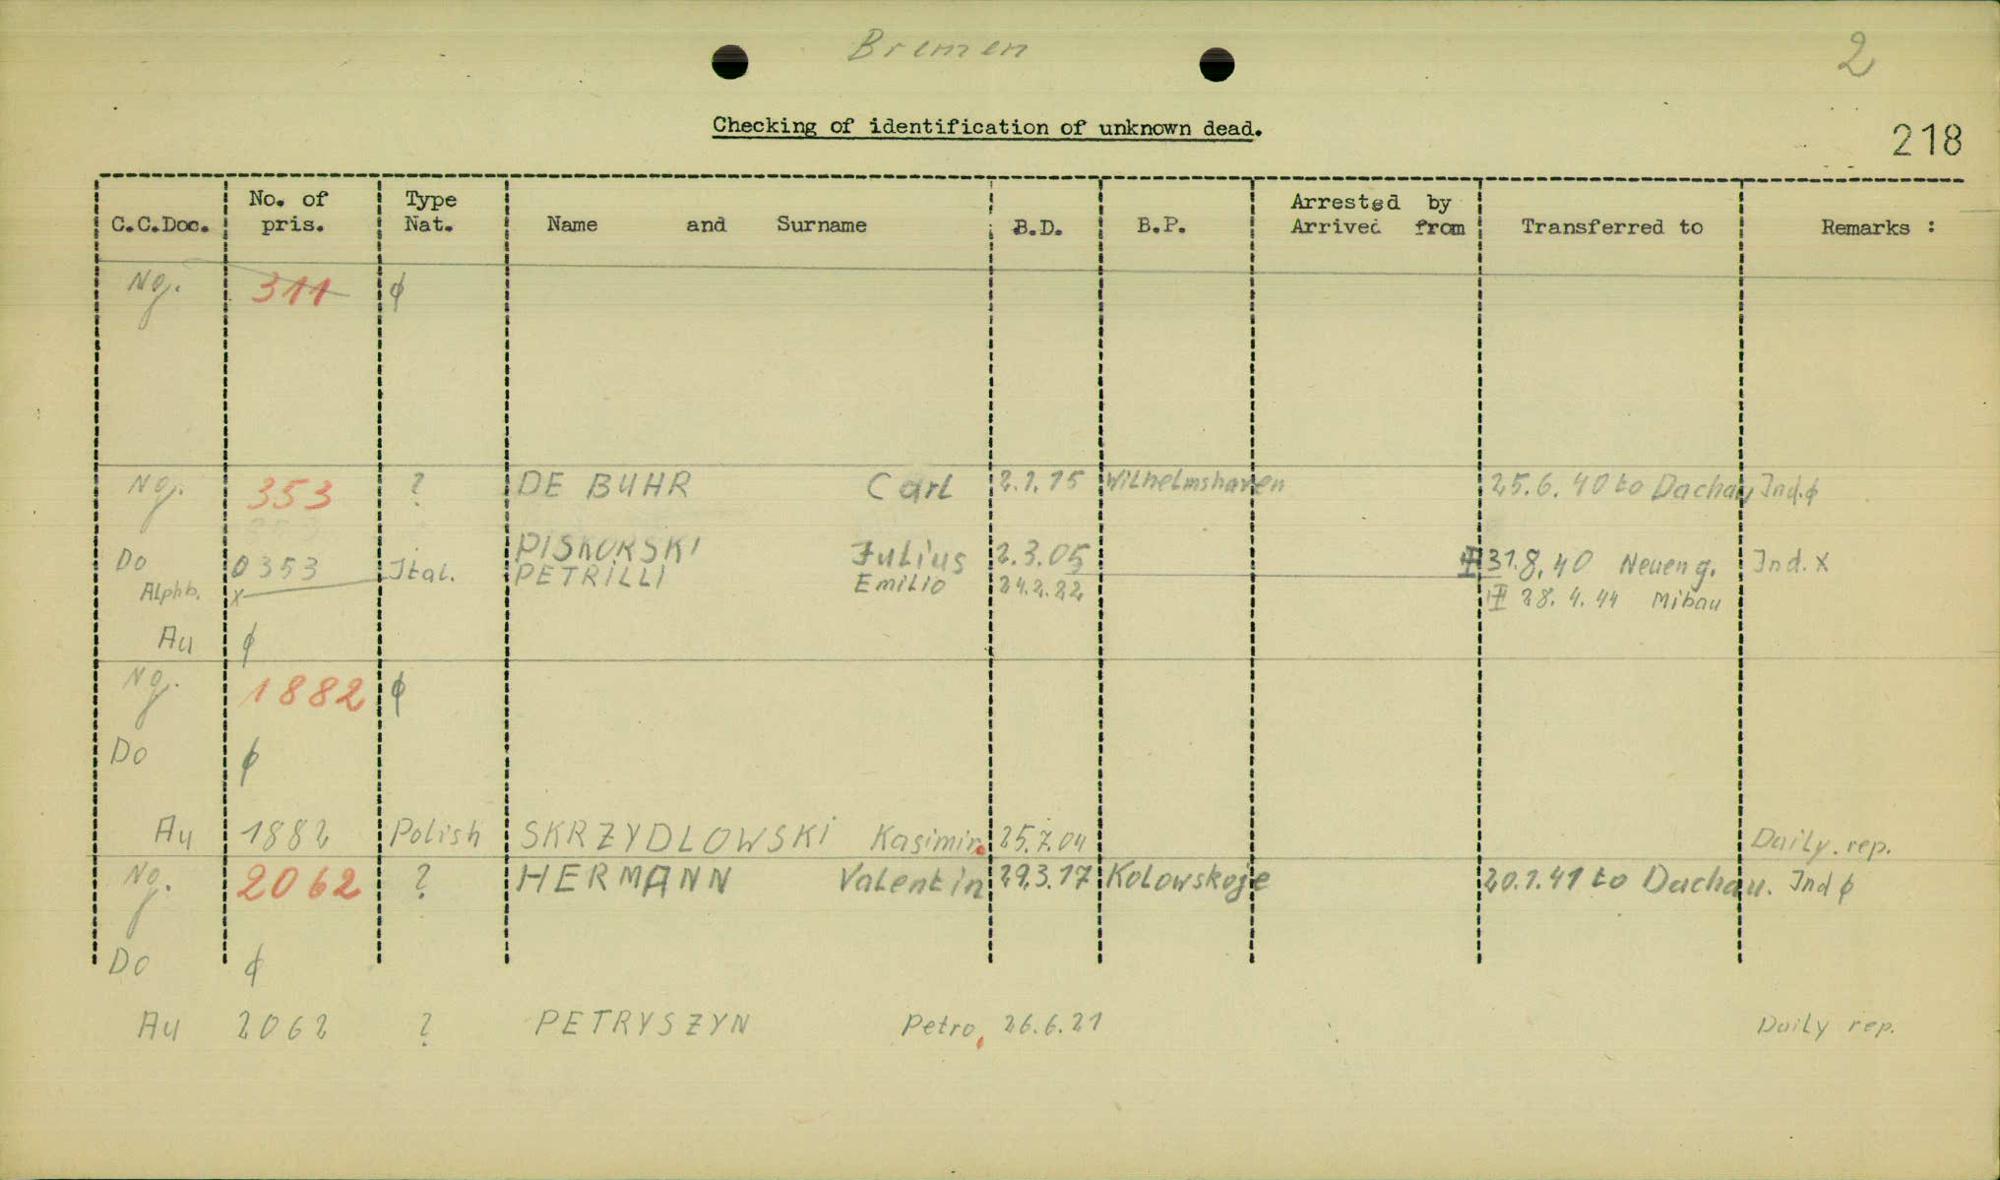 Bremen
2
Checking of identification of unknown dead.
218
C.C.Doc. No. of pris. Type Nat. Name and Surname B.D. B.P. Arrested by Arrived from Transferred to Remarks :
Ng. 311 ϕ
Ng. 353 ? DE BUHR Carl 2.1.15 Wilhelmshaven 25.6.40 to Dachau Ind.ϕ
Do 0353 PISKORSKI Julius 2.3.05 31.8.40 Neueng. Ind. X
Alphb. x Ital. PETRILLI Emilio 24.2.22 28.4.44 Mibau
Au ϕ
Ng. 1882 ϕ
Do ϕ
Au 1882 Polish SKRZYDLOWSKI Kasimir. 25.7.04 Daily. rep.
Ng. 2062 ? HERMANN Valentin 29.3.17 Kolowskoje 20.1.41 to Dachau. Ind ϕ
Do ϕ
Au 2062 ? PETRYSZYN Petro, 26.6.21 Daily rep.